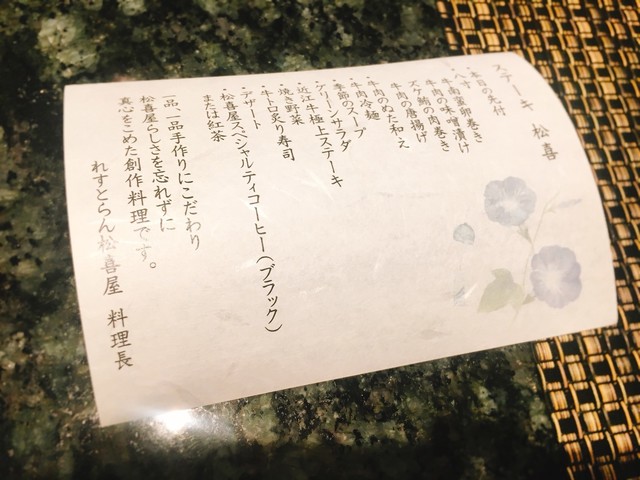 ステーキ 松喜
・本日の先付
・八寸
牛肉富卵巻き
牛肉の味噌漬け
ズケ鮪の肉巻き
牛肉の唐揚げ
牛肉のぬた和え
・牛肉冷麺
・季節のスープ
・グリーンサラダ
・近江牛極上ステーキ
・焼き野菜
・牛トロ炙り寿司
・デザート
・松喜屋スペシャルティコーヒー(ブラック)
または紅茶
一品、一品手作りにこだわり
松喜屋らしさを忘れずに
真心をこめた創作料理です。
れすとらん松喜屋 料理長